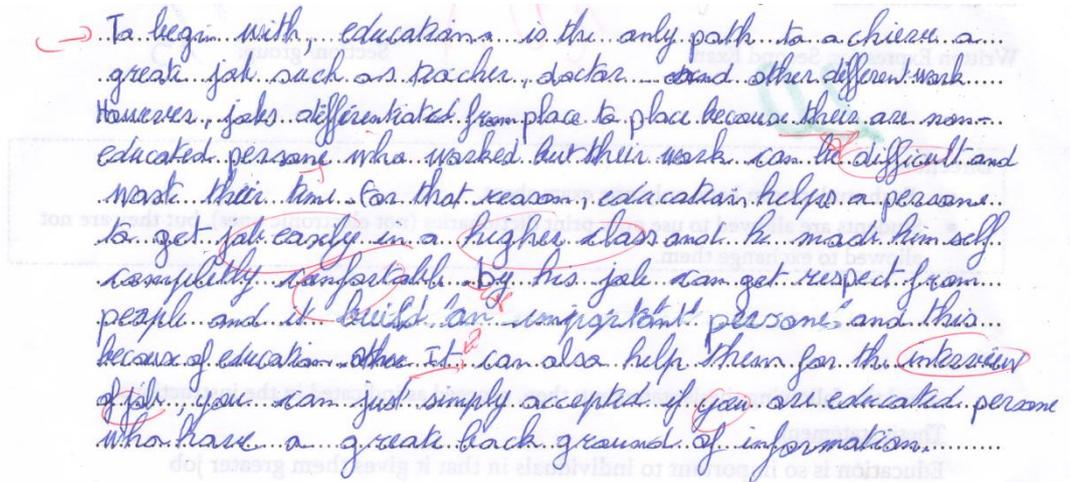 To begin with, education is the only path to achieve a
great job such as teacher, doctor and other different work
However, jobs differentiated from place to place because their are non-
educated persone who worked but their work can be difficult and
wast their time. For that reason, education, helps a persone
to get job easely in a higher class and he made him self
completly comfortable. by his job can get respect from
people and it build "an important" persone, and this
because of education. It can also help them for the interview
of job, you can just simply accepted if you are educated persone
who have a greate back ground of information.